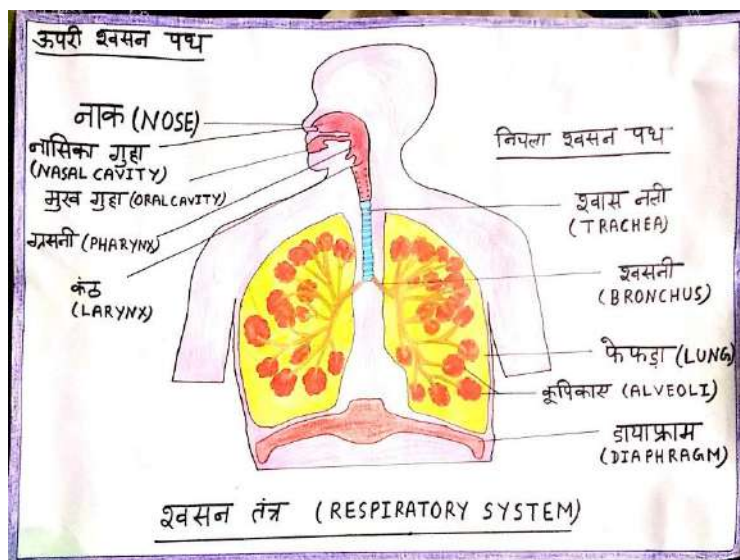 ऊपरी श्वसन पथ
नाक (NOSE)
नासिका गुहा
(NASAL CAVITY)
मुख गुहा (ORAL CAVITY)
ग्रसनी (PHARYNX)
कंठ
(LARYNX)
निचला श्वसन पथ
श्वास नली
(TRACHEA)
श्वसनी
(BRONCHUS)
फेफड़ा (LUNG)
कूपिकाएं (ALVEOLI)
डायाफ्राम
(DIAPHRAGM)
श्वसन तंत्र (RESPIRATORY SYSTEM)